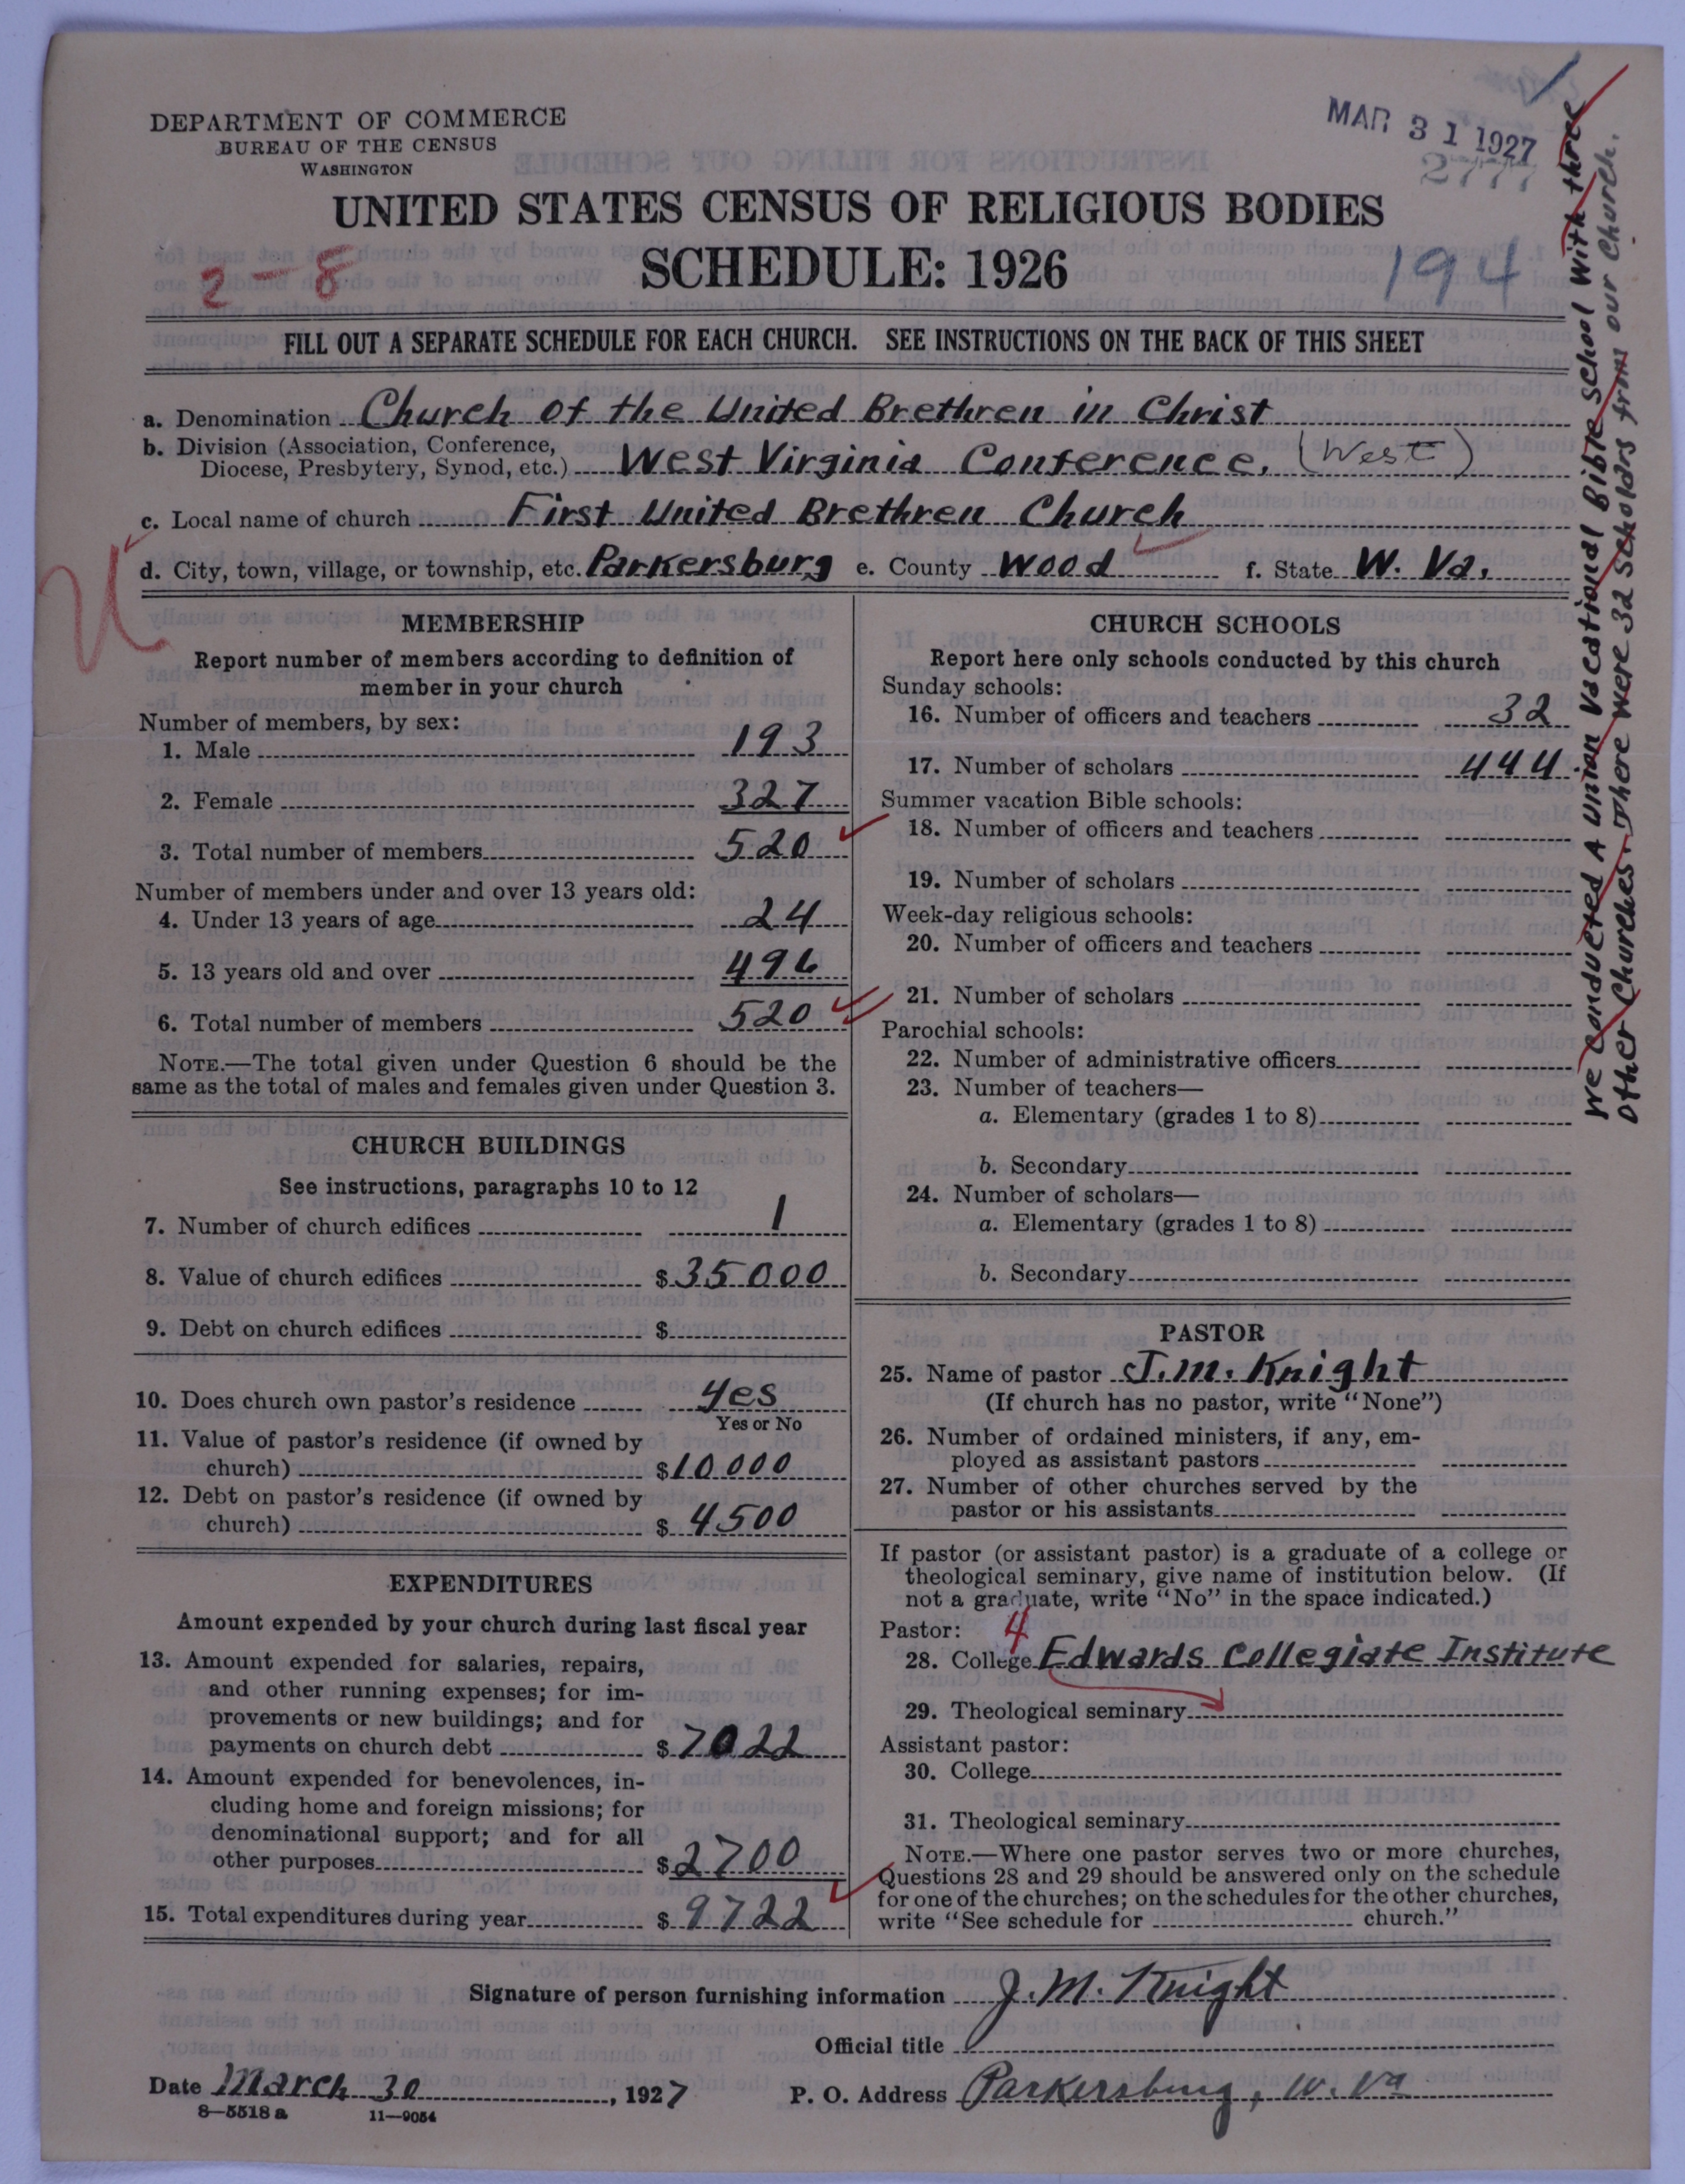 DEPARTMENT OF COMMERCE
BUREAU OF THE CENSUS
WASHINGTON
MAR 31 1927
2777
UNITED STATES CENSUS OF RELIGIOUS BODIES
SCHEDULE: 1926
2-8
194
FILL OUT A SEPARATE SCHEDULE FOR EACH CHURCH. SEE INSTRUCTIONS ON THE BACK OF THIS SHEET
a. Denomination Church of the United Brethren in Christ
b. Division (Association, Conference,
Diocese, Presbytery, Synod, etc.) West Virginia Conference. (West)
c. Local name of church First United Brethren Church
d. City, town, village, or township, etc. Parkersburg e. County Wood f. State W. Va.
MEMBERSHIP
Report number of members according to definition of
member in your church
Number of members, by sex:
1. Male 193
2. Female 327
3. Total number of members 520
Number of members under and over 13 years old:
4. Under 13 years of age 24
5. 13 years old and over 496
6. Total number of members 520
NOTE.—The total given under Question 6 should be the
same as the total of males and females given under Question 3.
CHURCH BUILDINGS
See instructions, paragraphs 10 to 12
7. Number of church edifices 1
8. Value of church edifices $ 35000
9. Debt on church edifices $
10. Does church own pastor's residence yes
Yes or No
11. Value of pastor's residence (if owned by
church) $ 10000
12. Debt on pastor's residence (if owned by
church) $ 4500
EXPENDITURES
Amount expended by your church during last fiscal year
13. Amount expended for salaries, repairs,
and other running expenses; for im-
provements or new buildings; and for
payments on church debt $ 7022
14. Amount expended for benevolences, in-
cluding home and foreign missions; for
denominational support; and for all
other purposes $ 2700
15. Total expenditures during year $ 9722
CHURCH SCHOOLS
Report here only schools conducted by this church
Sunday schools:
16. Number of officers and teachers 32
17. Number of scholars 444
Summer vacation Bible schools:
18. Number of officers and teachers
19. Number of scholars
Week-day religious schools:
20. Number of officers and teachers
21. Number of scholars
Parochial schools:
22. Number of administrative officers
23. Number of teachers—
a. Elementary (grades 1 to 8)
b. Secondary
24. Number of scholars—
a. Elementary (grades 1 to 8)
b. Secondary
PASTOR
25. Name of pastor J. M. Knight
(If church has no pastor, write "None")
26. Number of ordained ministers, if any, em-
ployed as assistant pastors
27. Number of other churches served by the
pastor or his assistants
If pastor (or assistant pastor) is a graduate of a college or
theological seminary, give name of institution below. (If
not a graduate, write "No" in the space indicated.)
Pastor: 4
28. College Edwards Collegiate Institute
29. Theological seminary
Assistant pastor:
30. College
31. Theological seminary
NOTE.—Where one pastor serves two or more churches,
Questions 28 and 29 should be answered only on the schedule
for one of the churches; on the schedules for the other churches,
write "See schedule for church."
We conducted A Union Vacational Bible School with three
other Churches. There were 32 scholars from our Church.
Signature of person furnishing information J. M. Knight
Official title
Date March 30, 1927 P. O. Address Parkersburg, W. Va
8—5518 a 11—9054